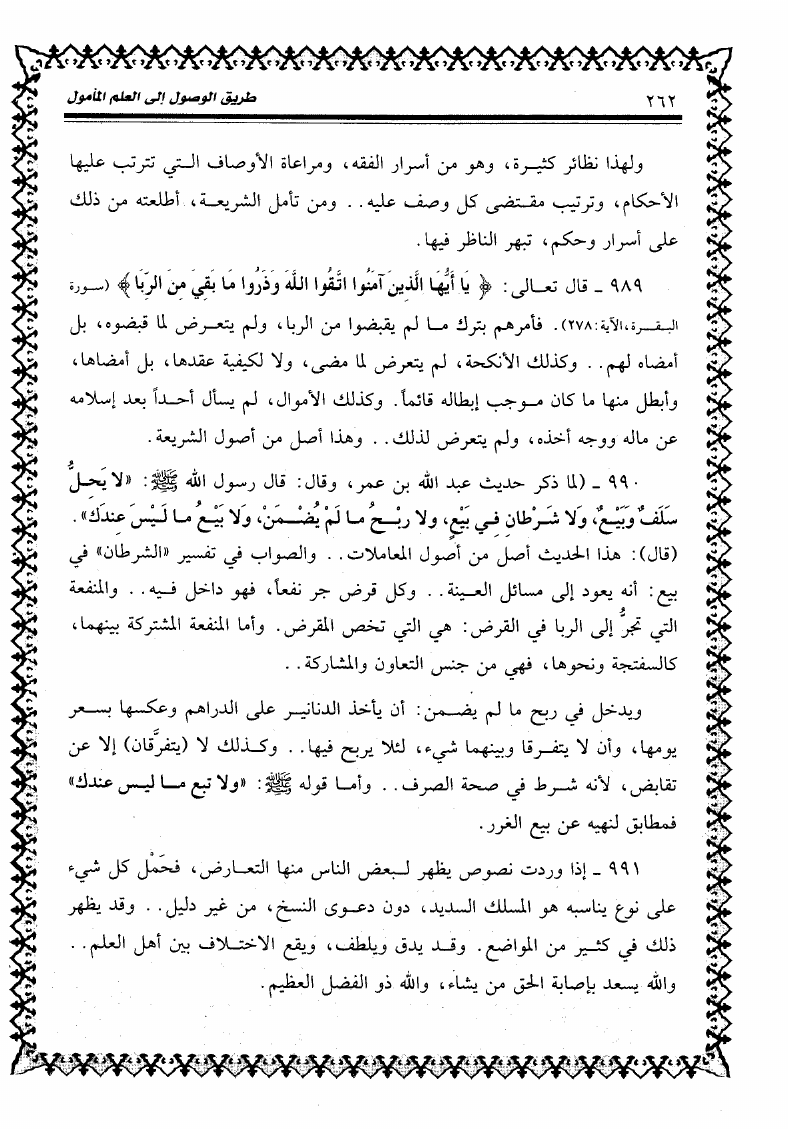 ٢٦٢
طريق الوصول إلى العلم المأمول
ولهذا نظائر كثيرة، وهو من أسرار الفقه، ومراعاة الأوصاف التي تترتب عليها
الأحكام، وترتيب مقتضى كل وصف عليه.. ومن تأمل الشريعة، أطلعته من ذلك
على أسرار وحكم، تبهر الناظر فيها.
٩٨٩ ـ قال تعالى: ﴿ يَا أَيُّهَا الَّذِينَ آمَنُوا اتَّقُوا اللَّهَ وَذَرُوا مَا بَقِيَ مِنَ الرِّبَا ﴾ (سورة
البقرة،الآية:٢٧٨). فأمرهم بترك ما لم يقبضوا من الربا، ولم يتعرض لما قبضوه، بل
أمضاه لهم.. وكذلك الأنكحة، لم يتعرض لما مضى، ولا لكيفية عقدها، بل أمضاها،
وأبطل منها ما كان موجب إبطاله قائماً. وكذلك الأموال، لم يسأل أحداً بعد إسلامه
عن ماله ووجه أخذه، ولم يتعرض لذلك.. وهذا أصل من أصول الشريعة.
٩٩٠ ـ (لما ذكر حديث عبد الله بن عمر، وقال: قال رسول الله ﷺ: «لا يَحِلُّ
سَلَفٌ وَبَيْعٌ، وَلا شَرْطانِ فِي بَيْعٍ، ولا رِبْحُ ما لَمْ يُضْمَنْ، وَلا بَيْعُ ما لَيْسَ عِندَكَ».
(قال): هذا الحديث أصل من أصول المعاملات.. والصواب في تفسير «الشرطان» في
بيع: أنه يعود إلى مسائل العينة.. وكل قرض جر نفعاً، فهو داخل فيه.. والمنفعة
التي تجرُّ إلى الربا في القرض: هي التي تخص المقرض. وأما المنفعة المشتركة بينهما،
كالسفتجة ونحوها، فهي من جنس التعاون والمشاركة..
ويدخل في ربح ما لم يضمن: أن يأخذ الدنانير على الدراهم وعكسها بسعر
يومها، وأن لا يتفرقا وبينهما شيء، لئلا يربح فيها.. وكذلك لا (يتفرَّقان) إلا عن
تقابض، لأنه شرط في صحة الصرف.. وأما قوله ﷺ: «ولا تبع ما ليس عندك»
فمطابق لنهيه عن بيع الغرر.
٩٩١ ـ إذا وردت نصوص يظهر لبعض الناس منها التعارض، فحَمْل كل شيء
على نوع يناسبه هو المسلك السديد، دون دعوى النسخ، من غير دليل.. وقد يظهر
ذلك في كثير من المواضع. وقد يدق ويلطف، ويقع الاختلاف بين أهل العلم..
والله يسعد بإصابة الحق من يشاء، والله ذو الفضل العظيم.